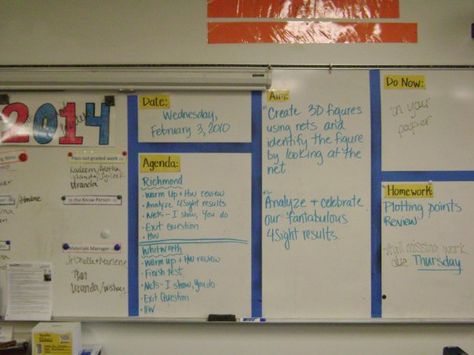 2014
Has not graded work
Miranda
In the Know Person
Materials Manager
Date:
Wednesday,
February 3, 2010
Agenda:
Richmond
- Warm up + HW review
- Analyze 4sight results
- Nets - I show, You do
- Exit Question
- HW
Whitworth
- Warm up + HW review
- Finish test
- Nets - I show, You do
- Exit Question
- HW
Aim:
* Create 3D figures
using nets and
identify the figure
by looking at the
net
* Analyze + celebrate
our fantabulous
4sight results.
Do Now:
in your
paper
Homework
Plotting points
Review
* All missing work
due Thursday